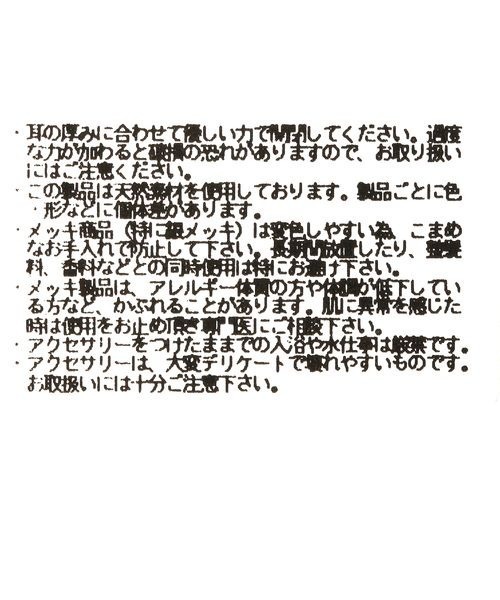 ・耳の厚みに合わせて優しい力で開閉してください。過度
な力が加わると破損の恐れがありますので、お取り扱い
にはご注意ください。
・この製品は天然素材を使用しております。製品ごとに色
・形などに個体差があります。
・メッキ商品（特に銀メッキ）は変色しやすい為、こまめ
なお手入れで防止して下さい。長期間放置したり、整髪
料、香料などとの同時使用は特にお避け下さい。
・メッキ製品は、アレルギー体質の方や体調が低下してい
る方など、かぶれることがあります。肌に異常を感じた
時は使用をお止め頂き専門医にご相談下さい。
・アクセサリーをつけたままでの入浴や水仕事は厳禁です。
・アクセサリーは、大変デリケートで壊れやすいものです。
お取扱いには十分ご注意下さい。